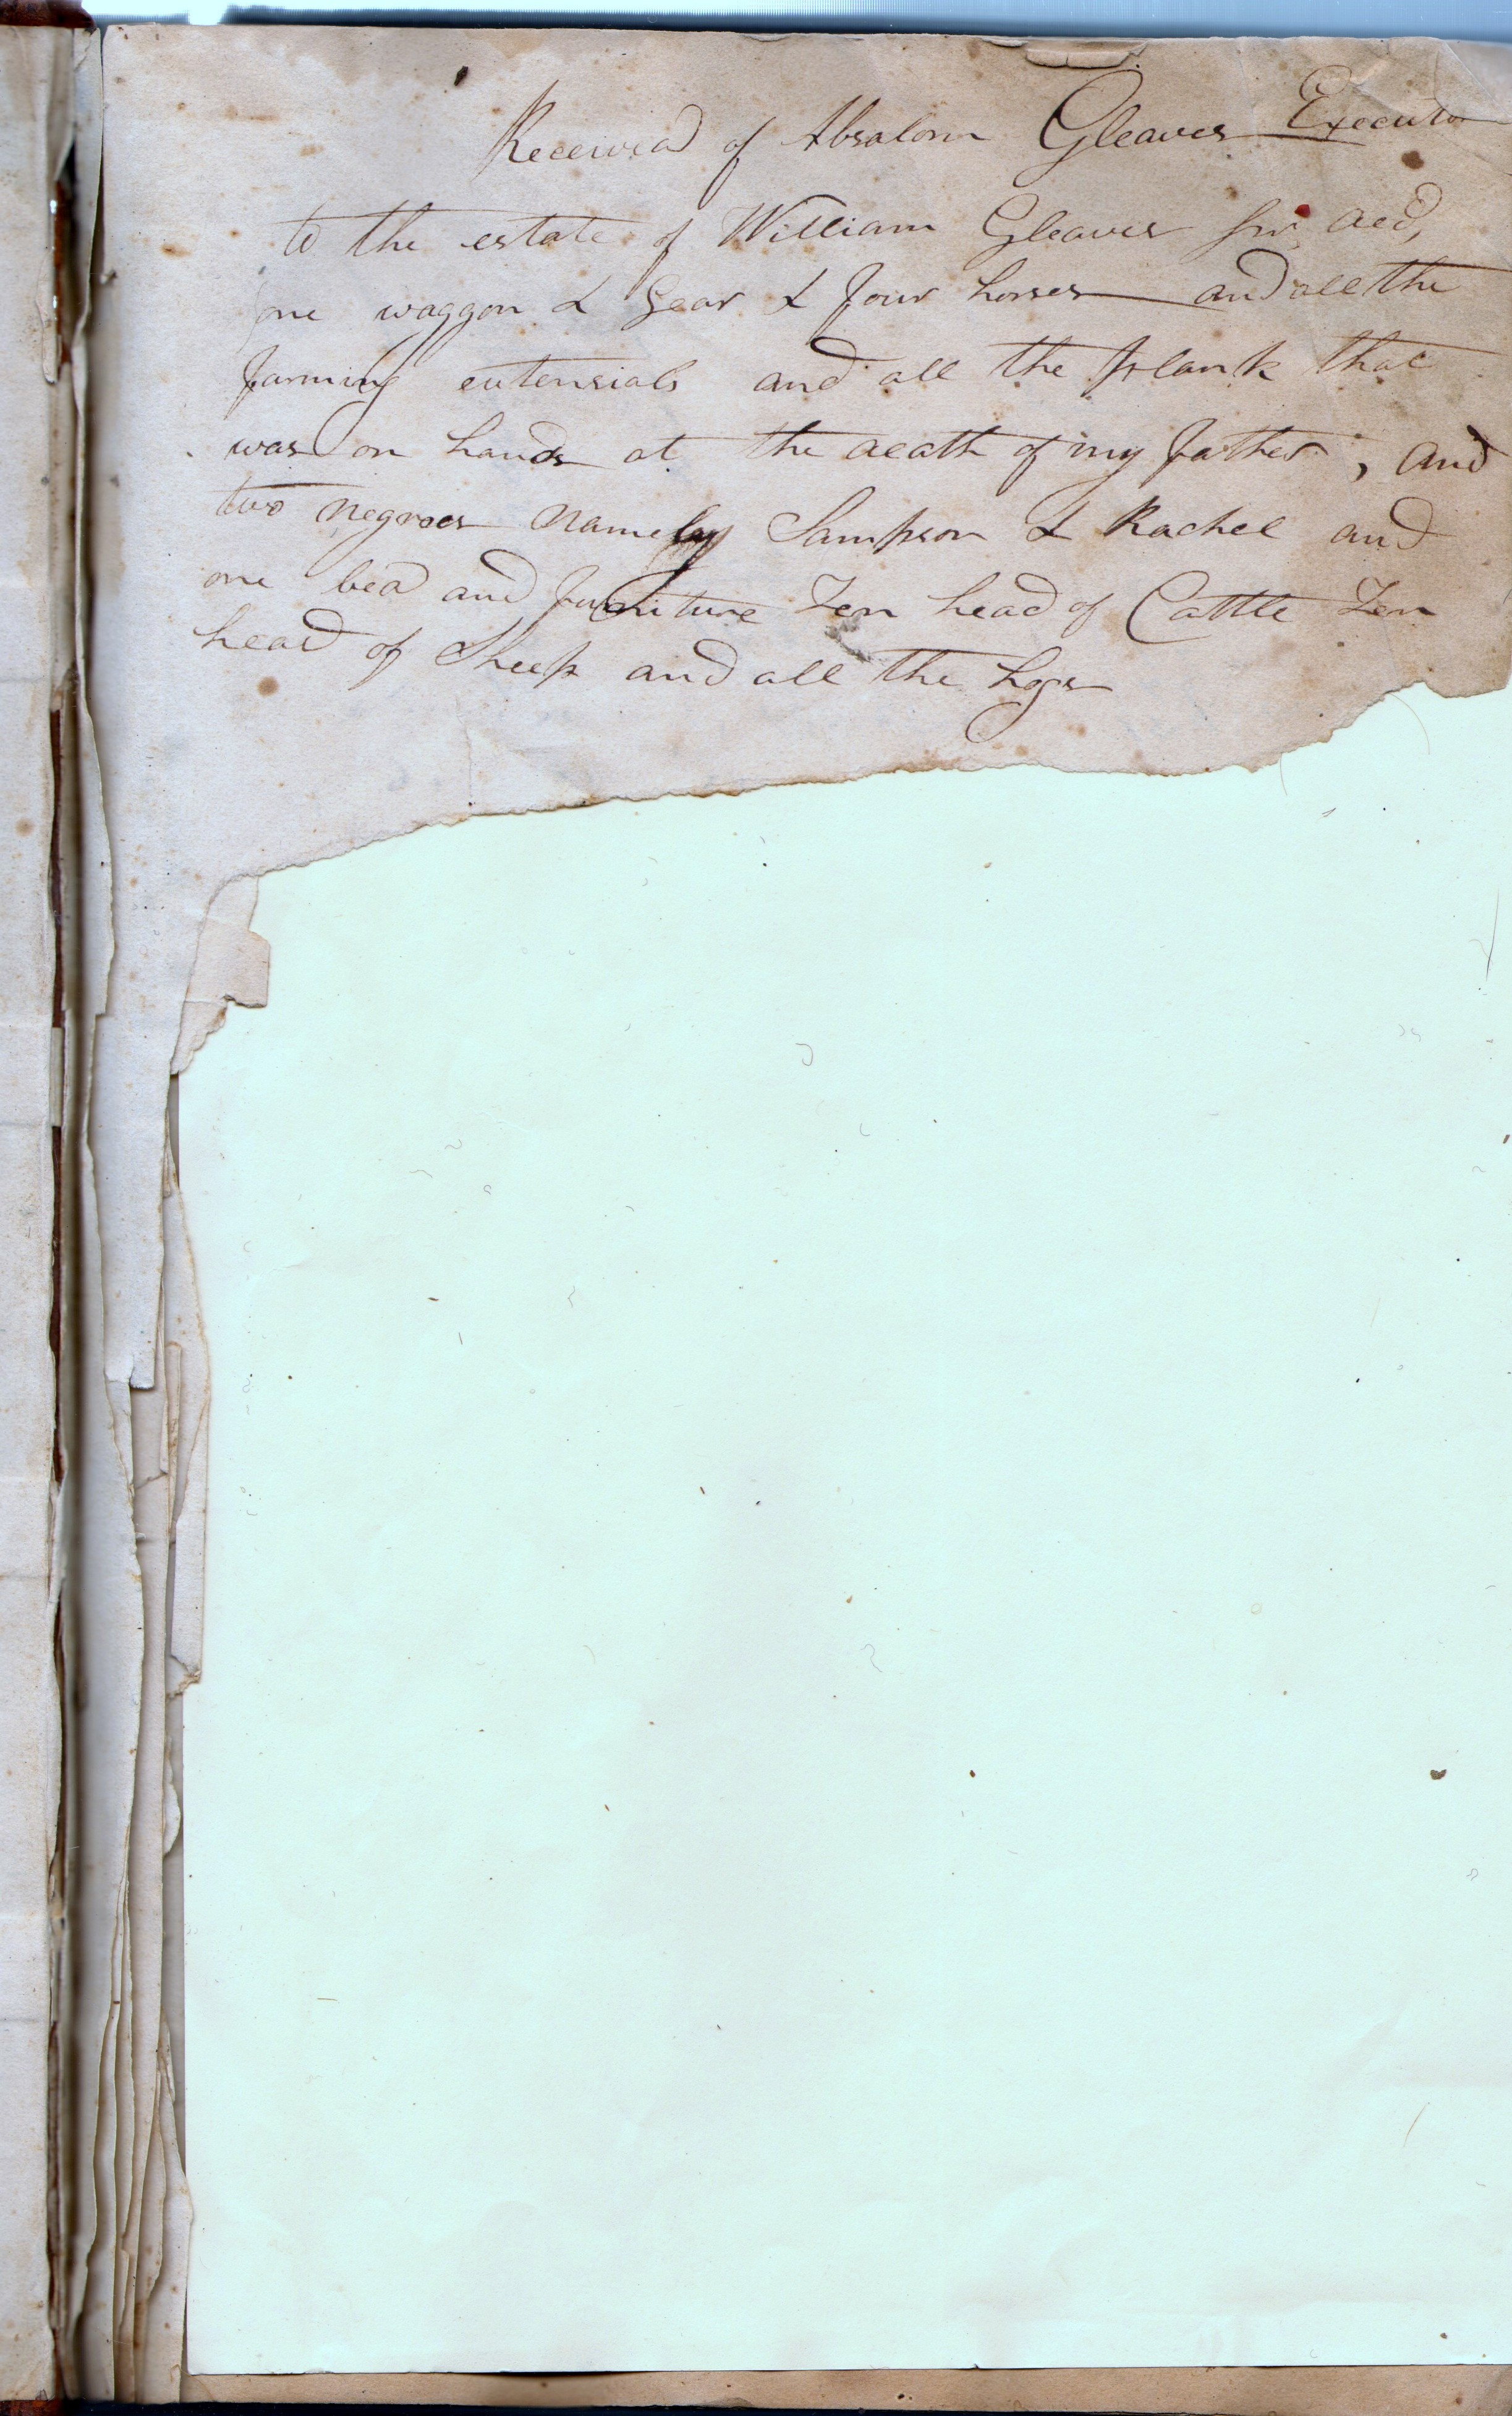 Received of Absalom Gleaves Executor
to the estate of William Gleaves Snr decd,
one waggon & Gear & four horses and all the
farming eutensials and all the plank that
was on hands at the death of my father, and
two negroes namely Sampson & Rachel and
one bed and furniture Ten head of Cattle Ten
head of Sheep and all the hogs